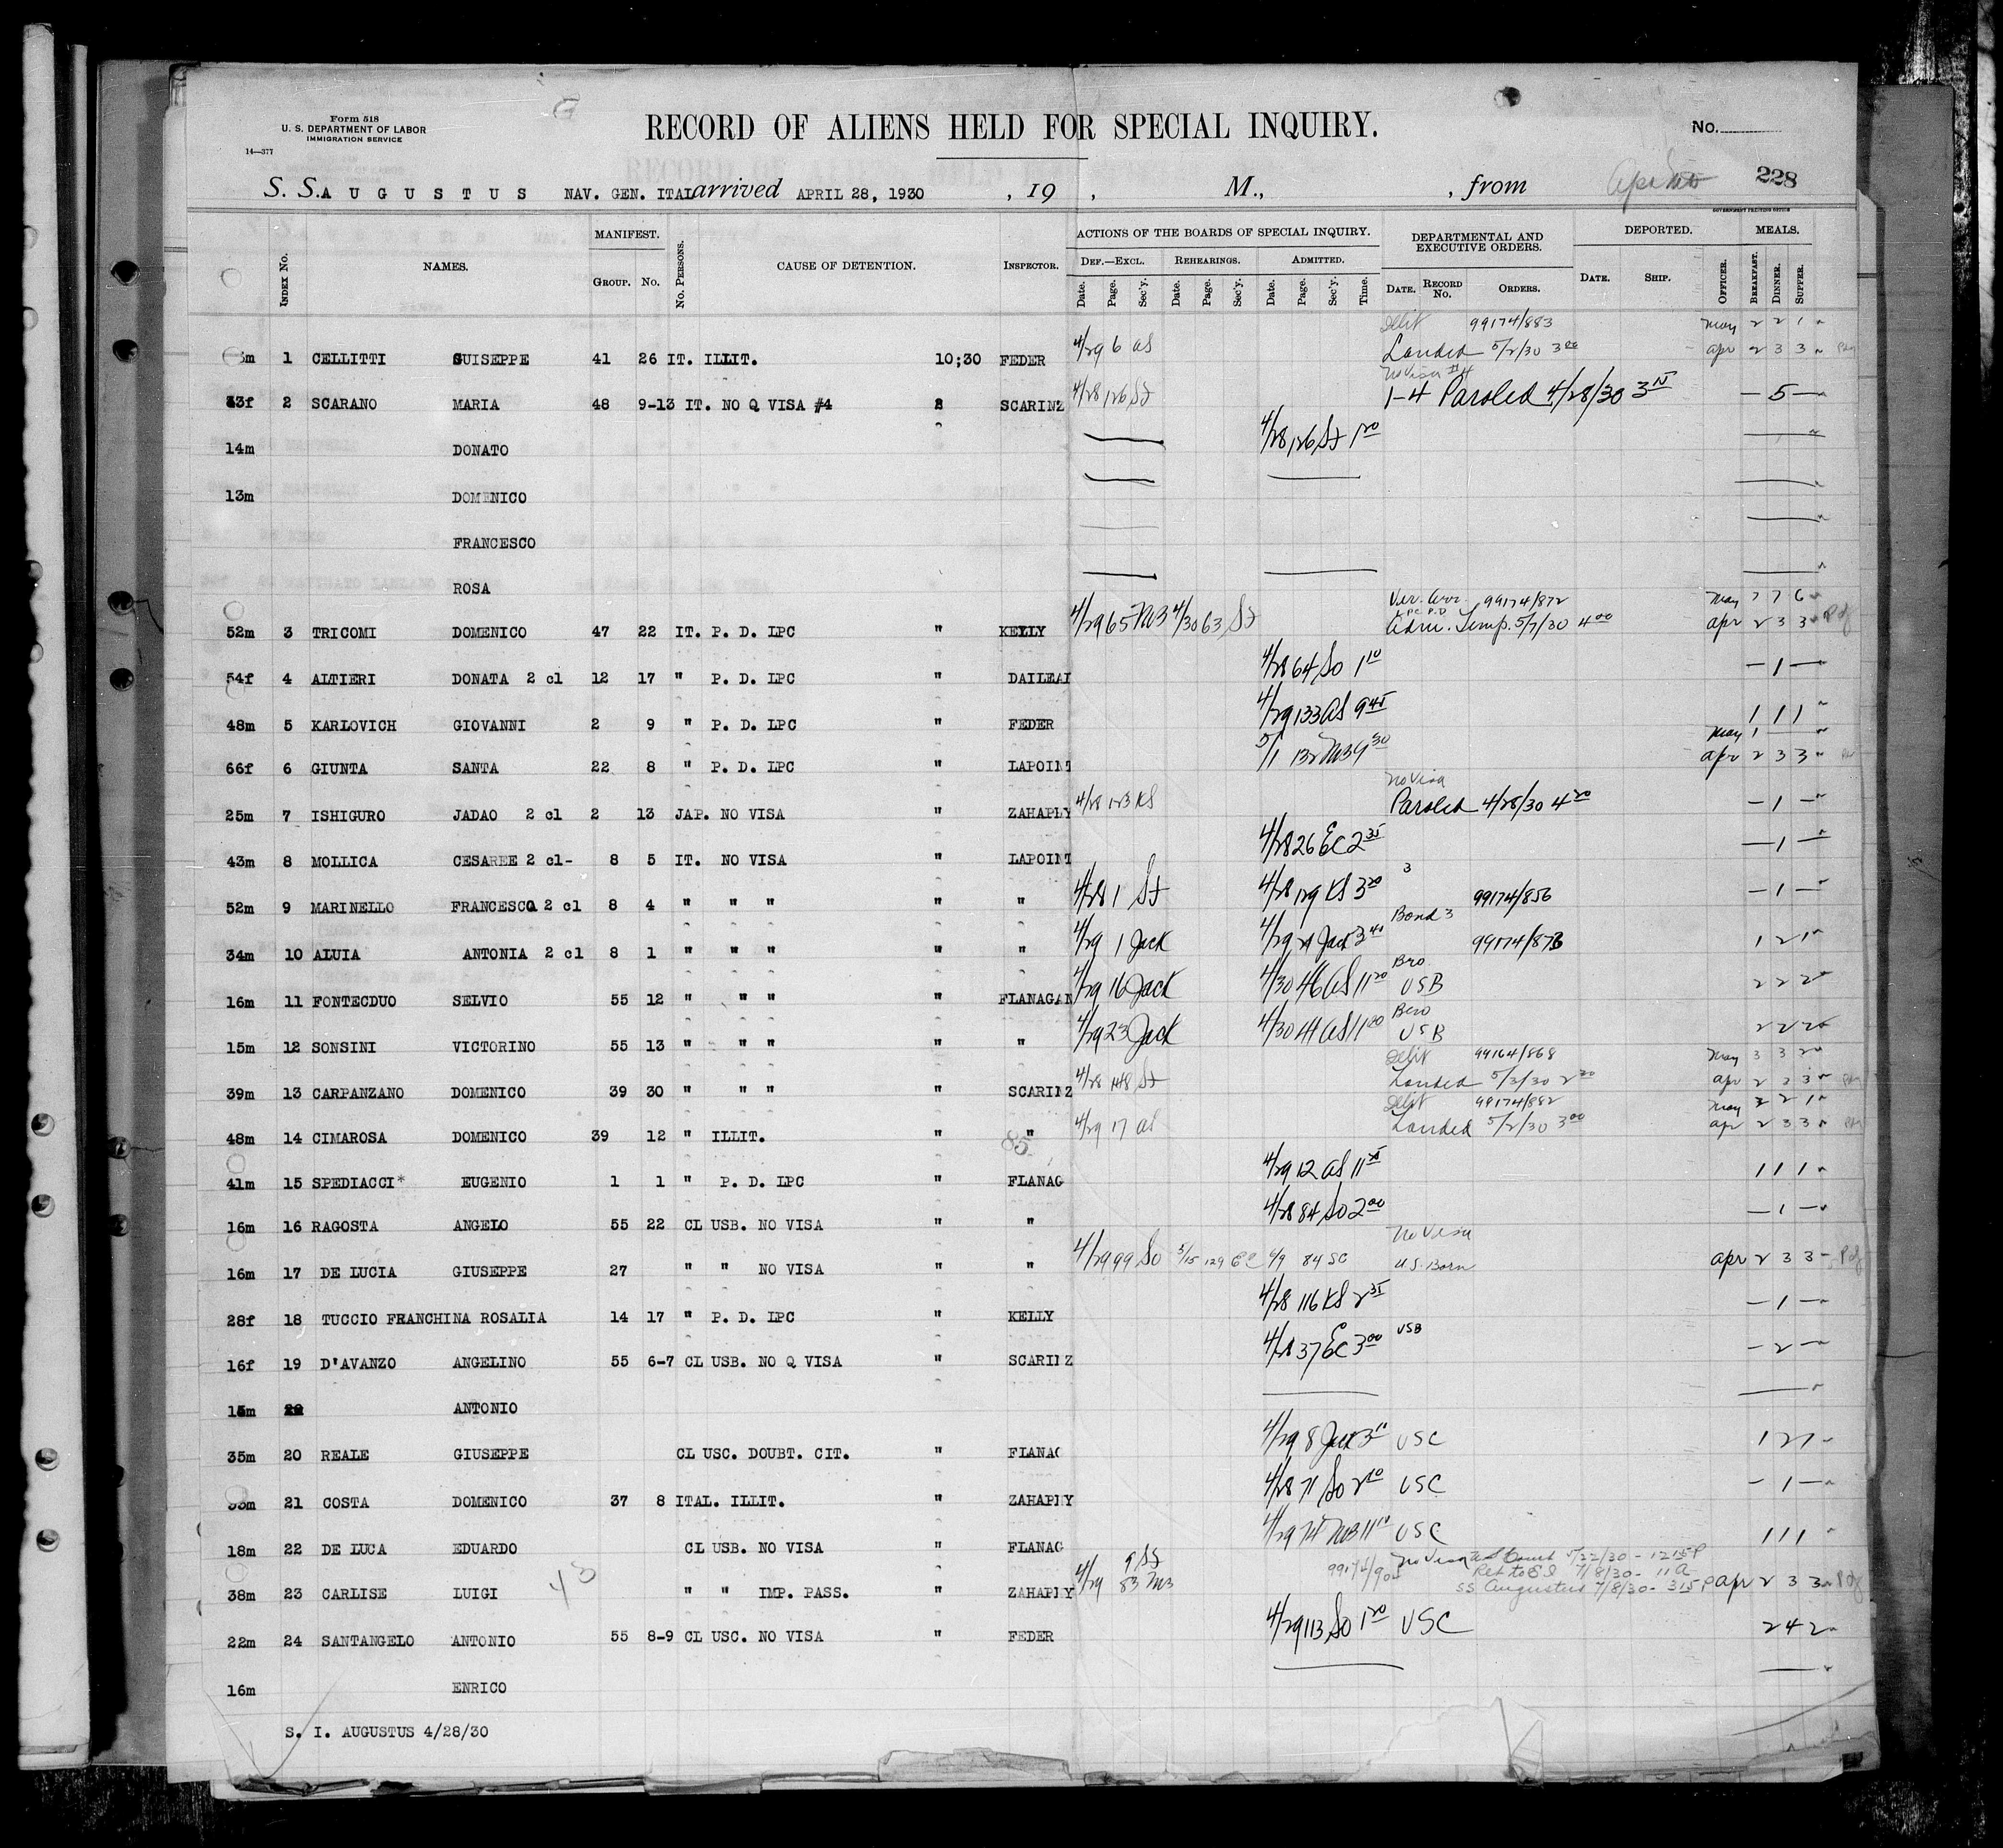 Form 518
U. S. DEPARTMENT OF LABOR
IMMIGRATION SERVICE
14—377
RECORD OF ALIENS HELD FOR SPECIAL INQUIRY.
No.
228
S. S. AUGUSTUS NAV. GEN. ITAL arrived APRIL 28, 1930 , 19 , M., , from
GOVERNMENT PRINTING OFFICE
INDEX NO. NAMES. MANIFEST. GROUP. NO. NO. PERSONS. CAUSE OF DETENTION. INSPECTOR. ACTIONS OF THE BOARDS OF SPECIAL INQUIRY. DEPARTMENTAL AND EXECUTIVE ORDERS. DEPORTED. MEALS.
DEF.—EXCL. REHEARINGS. ADMITTED.
Date. Page. Sec'y. Date. Page. Sec'y. Date. Page. Sec'y. Time. DATE. RECORD NO. ORDERS. DATE. SHIP. OFFICER. BREAKFAST. DINNER. SUPPER.
99174/883 May 2 2 1
m 1 CELLITTI GUISEPPE 41 26 IT. ILLIT. 10;30 FEDER 4/29 6 as Landed 5/2/30 3 00 apr 2 3 3
No Visa #4
f 2 SCARANO MARIA 48 9-13 IT. NO Q VISA #4 SCARINZ 4/28 126 St 1-4 Paroled 4/28/30 3 15 — 5 —
14m DONATO 4/28 126 St 1 20
13m DOMENICO
FRANCESCO
ROSA
Ver. Arr. 99174/872 May 7 7 6
LPC P.D
52m 3 TRICOMI DOMENICO 47 22 IT. P. D. LPC " KELLY 4/29 65 MB 4/30 63 St Adm. Temp. 5/7/30 4 00 apr 2 3 3
54f 4 ALTIERI DONATA 2 cl 12 17 " P. D. LPC " DAILEAI 4/28 64 So 1 10 — 1 —
48m 5 KARLOVICH GIOVANNI 2 9 " P. D. LPC " FEDER 4/29 133 as 9 45 1 1 1
May 1
66f 6 GIUNTA SANTA 22 8 " P. D. LPC " LAPOINT 5/1 132 MB 9 30 apr 2 3 3
No Visa
25m 7 ISHIGURO JADAO 2 cl 2 13 JAP. NO VISA " ZAHAPHY 4/28 123 KS Paroled 4/28/30 4 20 — 1 —
43m 8 MOLLICA CESAREE 2 cl- 8 5 IT. NO VISA " LAPOINT 4/28 26 EC 2 35 — 1 —
3
52m 9 MARINELLO FRANCESCO 2 cl 8 4 " " " " " 4/28 1 St 4/28 129 KS 3 20 99174/856 — 1 —
Bond 3
34m 10 ALUIA ANTONIA 2 cl 8 1 " " " " " 4/29 1 Jack 4/29 21 Jack 3 40 99174/873 1 2 1
Bro
16m 11 FONTECDUO SELVIO 55 12 " " " " FLANAGAN 4/29 16 Jack 4/30 46 as 11 20 USB 2 2 2
Bro
15m 12 SONSINI VICTORINO 55 13 " " " " " 4/29 23 Jack 4/30 41 as 11 00 USB 2 2 2
99164/868 May 3 3 2
39m 13 CARPANZANO DOMENICO 39 30 " " " " SCARINZ 4/28 148 St Landed 5/3/30 2 20 apr 2 3 3
99174/882 May 2 2 1
48m 14 CIMAROSA DOMENICO 39 12 " ILLIT. " " 4/29 17 as Landed 5/2/30 3 00 apr 2 3 3
85
41m 15 SPEDIACCI* EUGENIO 1 1 " P. D. LPC " FLANAG 4/29 12 as 11 1 1 1
16m 16 RAGOSTA ANGELO 55 22 CL USB. NO VISA " " 4/28 84 So 2 00 — 1 —
No Visa
16m 17 DE LUCIA GIUSEPPE 27 " " NO VISA " " 4/29 99 So 5/15 129 EC 6/9 84 SC U.S. Born apr 2 3 3
28f 18 TUCCIO FRANCHINA ROSALIA 14 17 " P. D. LPC " KELLY 4/28 116 KS 2 35 — 1 —
16f 19 D'AVANZO ANGELINO 55 6-7 CL USB. NO Q VISA " SCARINZ 4/28 37 EC 3 00 USB — 2 —
m ANTONIO
35m 20 REALE GIUSEPPE CL USC. DOUBT. CIT. " FLANAG 4/29 8 Jack 3 USC 1 2 1
m 21 COSTA DOMENICO 37 8 ITAL. ILLIT. " ZAHAPHY 4/28 71 So 2 10 USC — 1 —
18m 22 DE LUCA EDUARDO CL USB. NO VISA " FLANAG 4/29 MB 11 10 USC 1 1 1
9 St No Visa 5/22/30 - 1215P
99174/905 Ret to E I 7/8/30 - 11 A
38m 23 CARLISE LUIGI 43 " " IMP. PASS. " ZAHAPHY 4/29 83 MB SS Augustus 7/8/30 - 315 P apr 2 3 3
22m 24 SANTANGELO ANTONIO 55 8-9 CL USC. NO VISA " FEDER 4/29 113 So 1 20 USC 2 4 2
16m ENRICO
S. I. AUGUSTUS 4/28/30